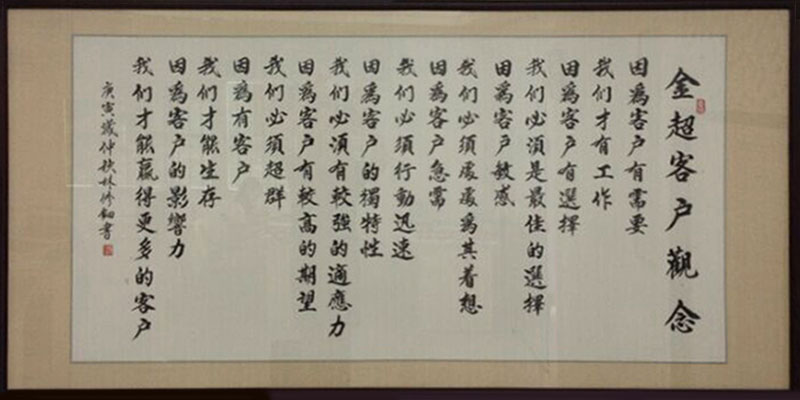 金超客户觀念
因為客户有需要
我们才有工作
因為客户有選擇
我们必須是最佳的選擇
因為客户敏感
我们必須處處為其着想
因為客户急需
我们必須行動迅速
因為客户的獨特性
我们必須有較強的適應力
因為客户有較高的期望
我们必須超群
因為有客户
我们才能生存
因為客户的影響力
我们才能贏得更多的客户
庚寅歲仲秋林
書